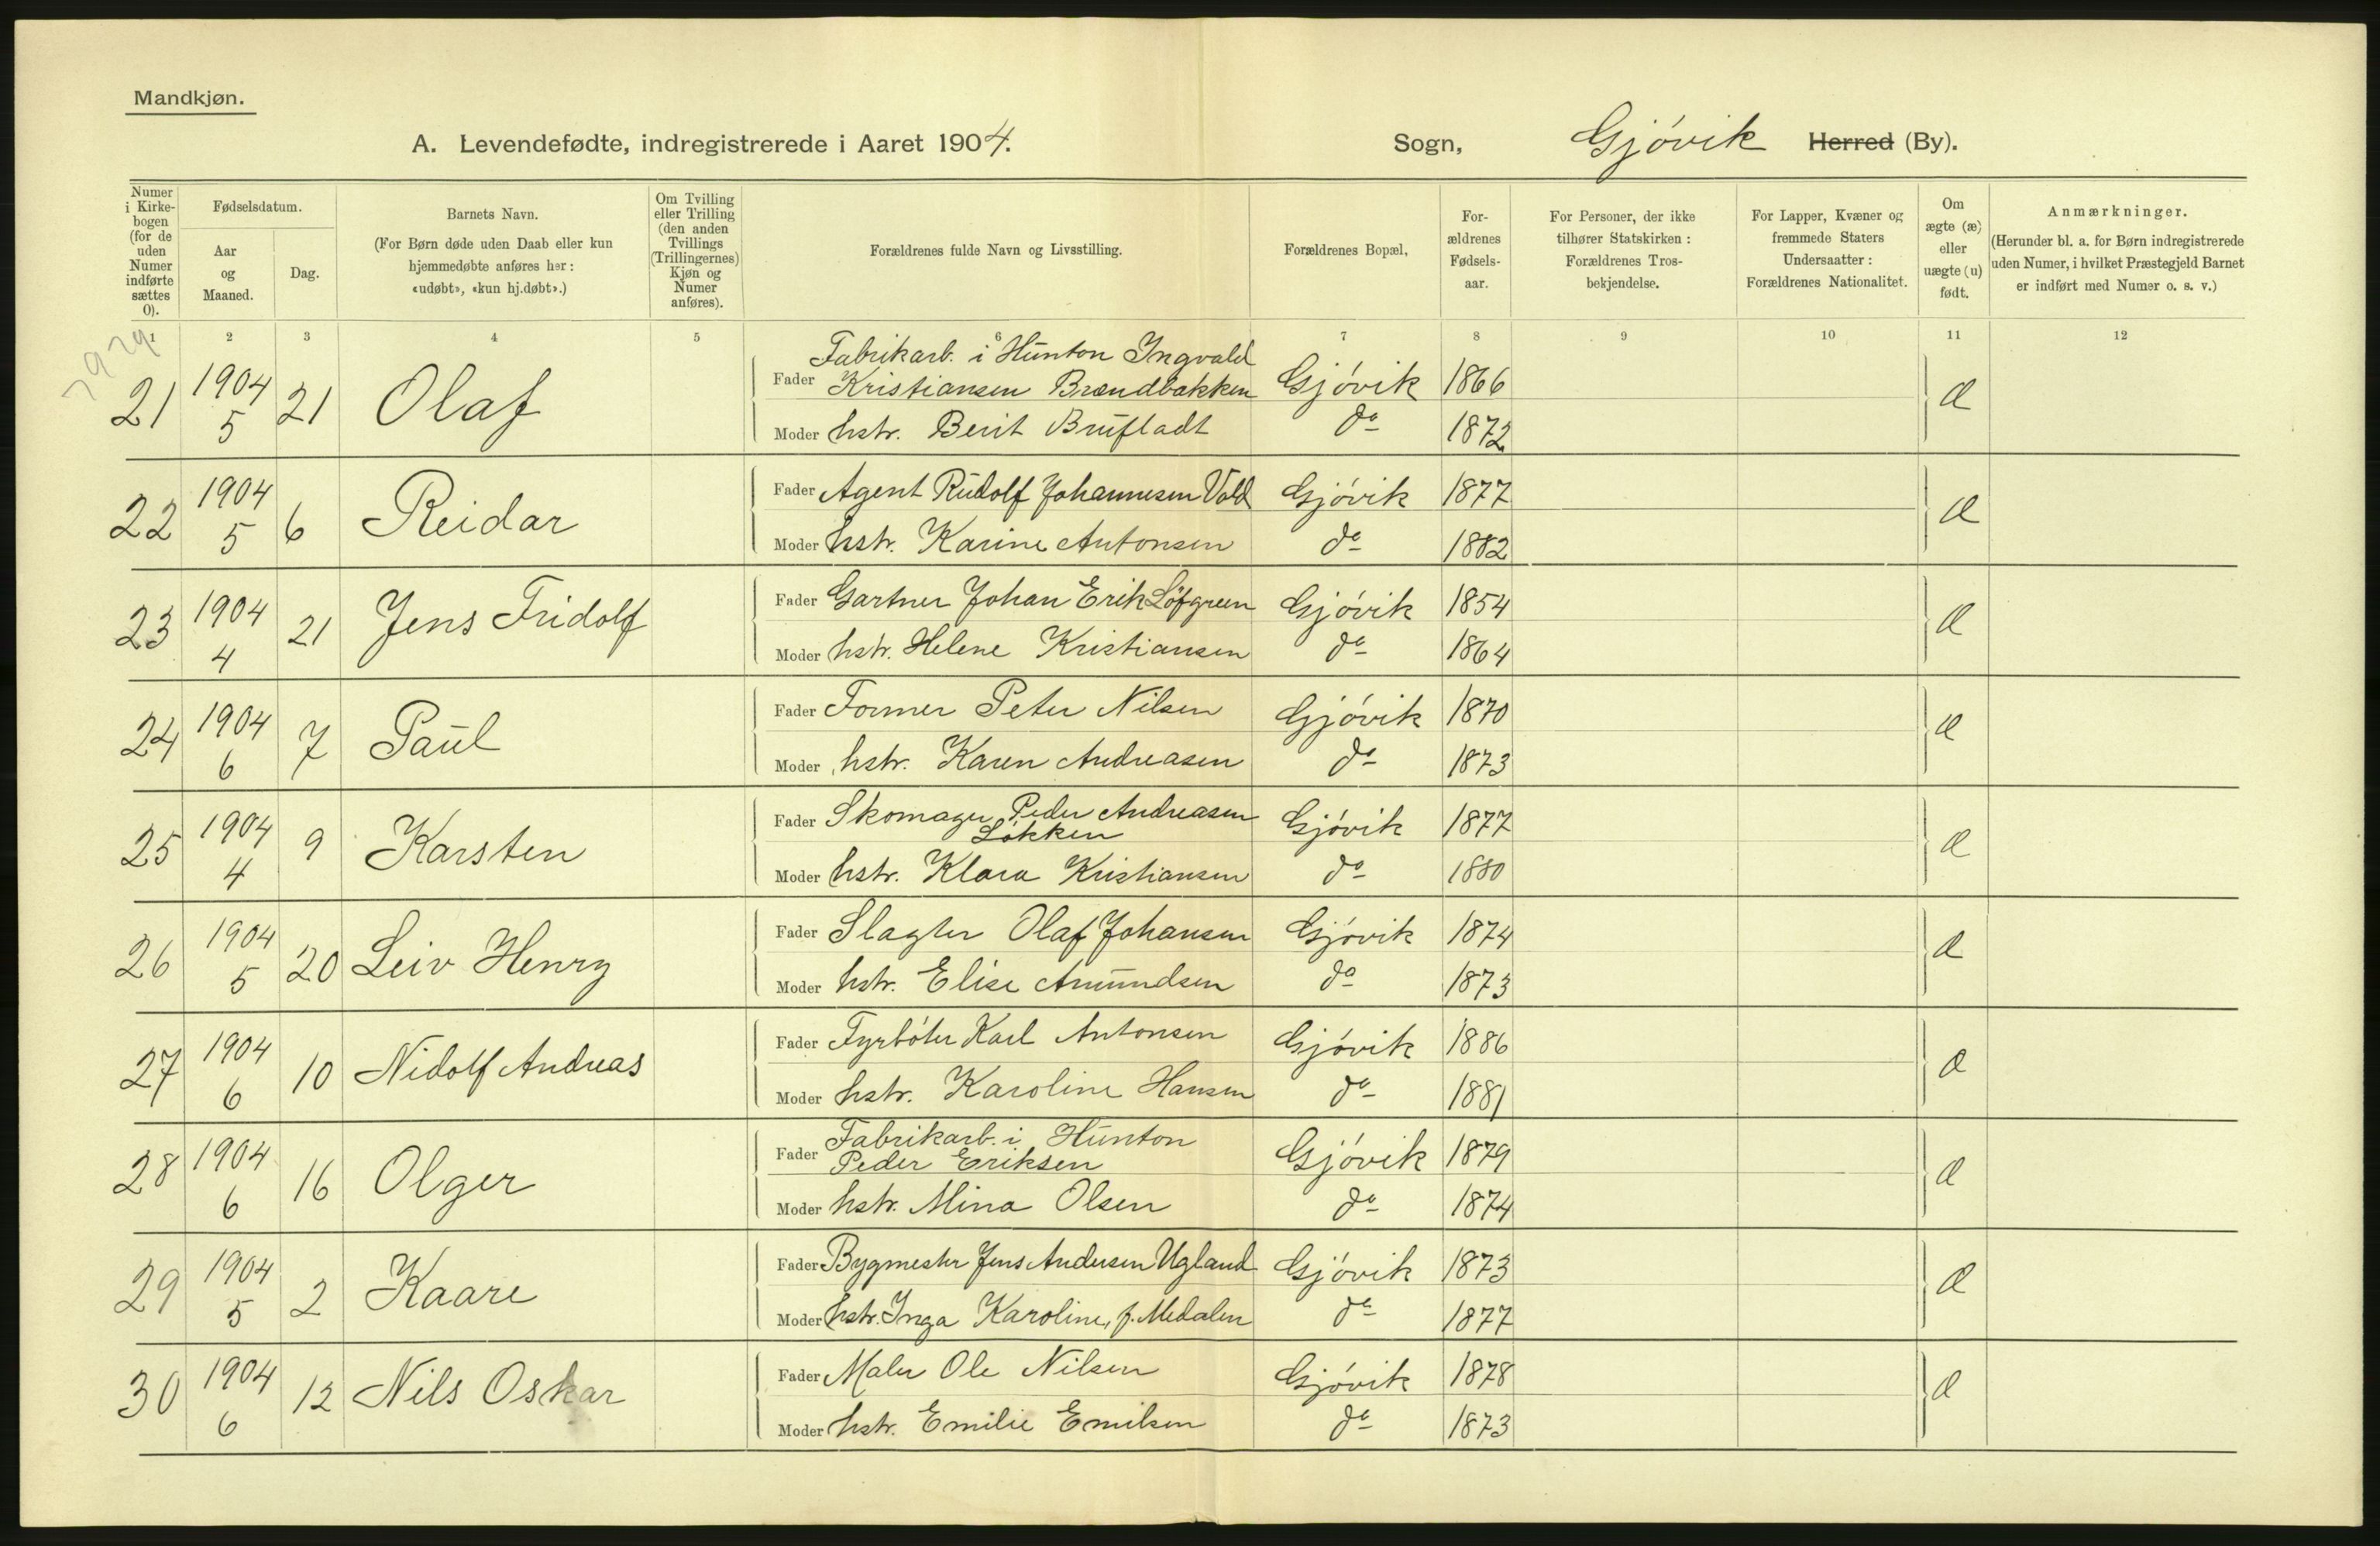 Mandkjøn.
A. Levendefødte, indregistrerede i Aaret 1904.
Sogn, Gjövik Herred (By).
Numer i Kirkebogen (for de uden Numer indførte sættes 0).
Fødselsdatum.
Aar og Maaned.
Dag.
Barnets Navn.
(For Børn døde uden Daab eller kun hjemmedøbte anføres her: «udøbt», «kun hj.døbt».)
Om Tvilling eller Trilling (den anden Tvillings (Trillingernes) Kjøn og Numer anføres).
Forældrenes fulde Navn og Livsstilling.
Forældrenes Bopæl,
Forældrenes Fødselsaar.
For Personer, der ikke tilhører Statskirken: Forældrenes Trosbekjendelse.
For Lapper, Kvæner og fremmede Staters Undersaatter: Forældrenes Nationalitet.
Om ægte (æ) eller uægte (u) født.
Anmærkninger.
(Herunder bl. a. for Børn indregistrerede uden Numer, i hvilket Præstegjeld Barnet er indført med Numer o. s. v.)
1 2 3 4 5 6 7 8 9 10 11 12
21 1904 5 21 Olaf
Fader Fabrikarb. i Hunton Ingvald
Kristiansen Brændbakken Gjövik 1866 æ
Moder hstr. Berit Brufladt do 1872
22 1904 5 6 Reidar
Fader Agent Rudolf Johannesen Vold Gjövik 1877 æ
Moder hstr. Karine Antonsen do 1882
23 1904 4 21 Jens Fridolf
Fader Gartner Johan Erik Löfgreen Gjövik 1854 æ
Moder hstr. Helene Kristiansen do 1864
24 1904 6 7 Paul
Fader Former Peter Nilsen Gjövik 1870 æ
Moder hstr. Karen Andreasen do 1873
25 1904 4 9 Karsten
Fader Skomager Peder Andreasen
Lökken Gjövik 1877 æ
Moder hstr. Klara Kristiansen do 1880
26 1904 5 20 Leiv Henry
Fader Slagter Olaf Johansen Gjövik 1874 æ
Moder hstr. Elise Amundsen do 1873
27 1904 6 10 Nidolf Andreas
Fader Fyrböter Karl Antonsen Gjövik 1886 æ
Moder hstr. Karoline Hansen do 1881
28 1904 6 16 Olger
Fader Fabrikarb. i Hunton
Peder Eriksen Gjövik 1879 æ
Moder hstr. Mina Olsen do 1874
29 1904 5 2 Kaare
Fader Bygmester Jens Andersen Ugland Gjövik 1873 æ
Moder hstr. Inga Karoline, f. Medalen do 1877
30 1904 6 12 Nils Oskar
Fader Maler Ole Nilsen Gjövik 1878 æ
Moder hstr. Emilie Emilsen do 1873